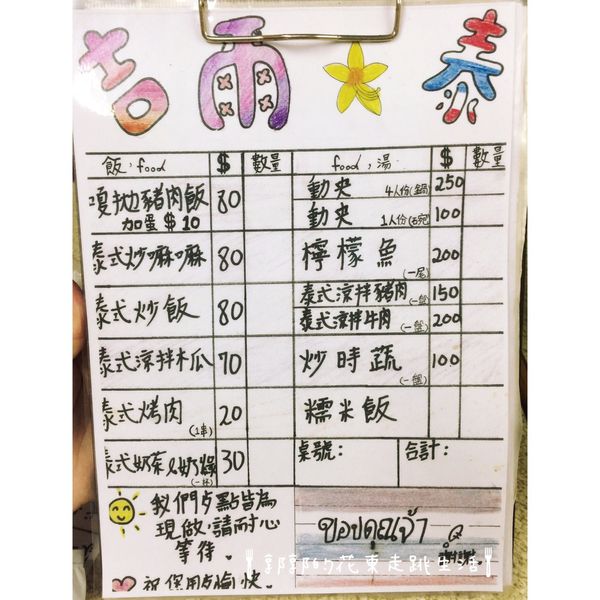 吉雨☆泰
飯，food $ 數量 food，湯 $ 數量
嘎拋豬肉飯 80
加蛋$10
泰式炒嘛嘛 80
泰式炒飯 80
泰式涼拌木瓜 70
泰式烤肉(1串) 20
泰式奶茶&奶綠(一杯) 30
動夾 4人份(鍋) 250
動夾 1人份(石宛) 100
檸檬魚(一尾) 200
泰式涼拌豬肉(一盤) 150
泰式涼拌牛肉(一盤) 200
炒時蔬(一盤) 100
糯米飯
桌號： 合計：
我們歺點皆為
現做，請耐心
等待。
祝您用歺愉快。
ขอบคุณจ้า
郭郭的花東走跳生活